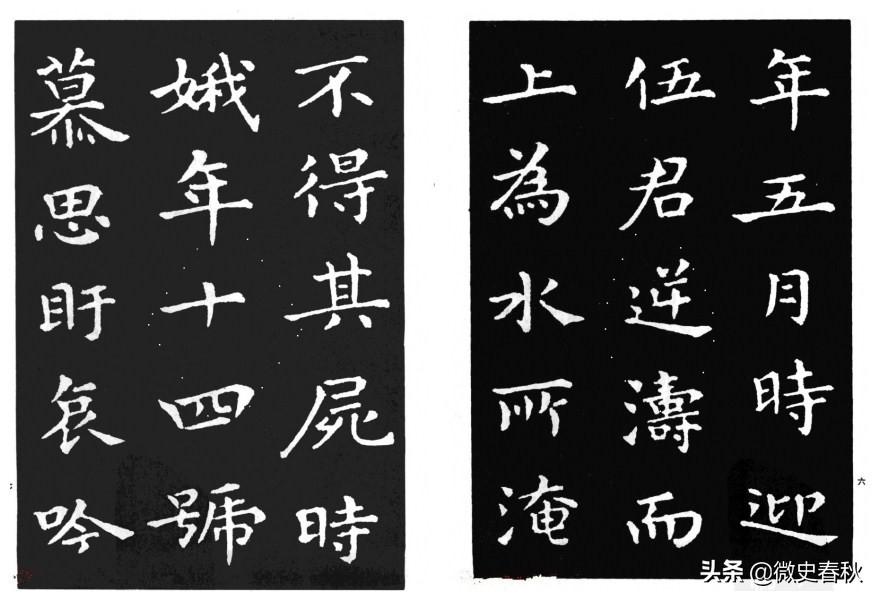 年五月時迎
伍君逆濤而
上為水所淹
不得其屍時
娥年十四號
慕思盱哀吟
六
七
头条 @微史春秋